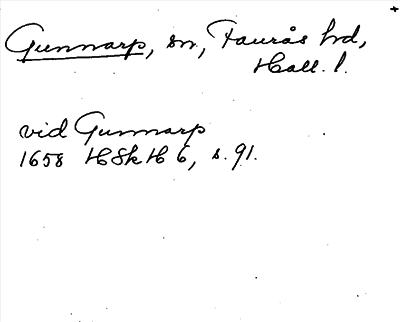 +
Gunnarp, sn, Faurås hd,
Hall. l.
vid Gunnarp
1658 HSkH 6, s. 91.